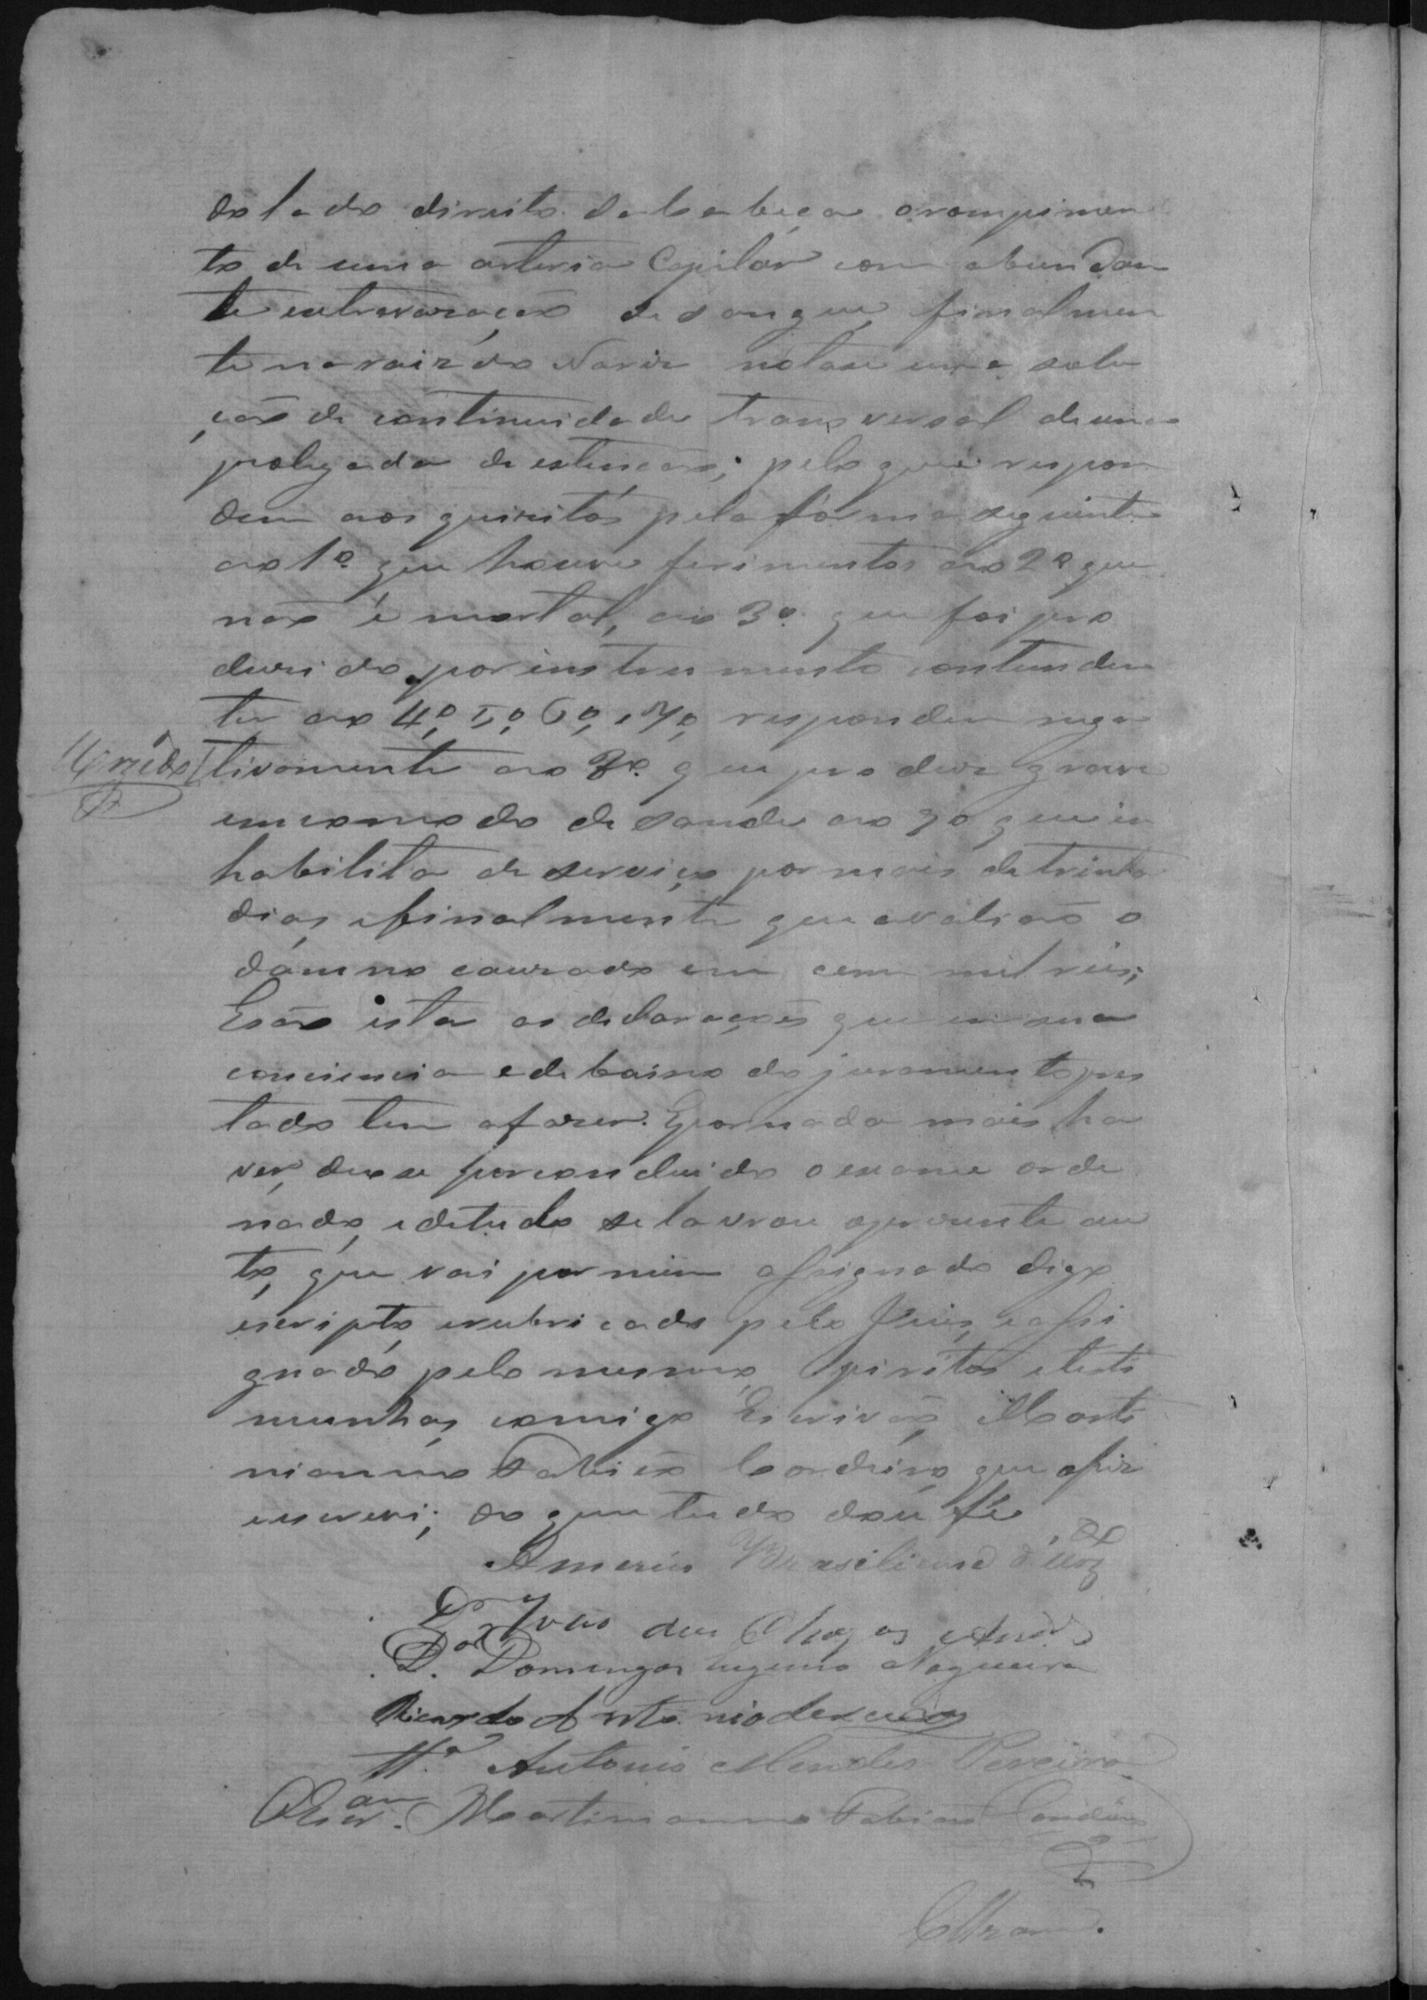 do lado direito da cabeça o rompimen
to de uma arteria Capilár com abundan
te extravasação de sangue, finalmen
te na raiz do Nariz nota se uma solu
ção de continuidade transversal de uma
polegada de extenção; pelo que respon
dem aos quisitos pela fórma seguinte
ao 1º que houve ferimentos ao 2º que
não é mortal, ao 3º que foi pro
dusido por instrumento contunden
te ao 4º, 5º, 6º, e 7º, respondem nega
tivamente ao 8º que produz grave
incomodo de saude ao 9º que in
habilita de serviço por mais de trinta
dias e finalmente que avalião o
dámno causado em cem mil reis;
E são estas as declarações que em sua
conciencia e debaixo do juramento pres
tado tem a faser. E por nada mais ha
ver, deo se por concluido o exame orde
nado, e de tudo se lavrou o presente au
to, que vai por mim assignado digo
escripto e rubricado pelo Juiz, e assi
gnado pelo mesmo, piritos e teste
munhas comigo Escrivão Marti
nianno Fabião Cordeiro, que o fiz
e escrevi; do que tudo dou fé
Americo Brasiliense
Dor João das Chagas
Dor Domingos Eugenio Nogueira
Ricardo Antonio de
Antonio Mendes Pereira
O Escram. Martinianno Fabião Cordeiro